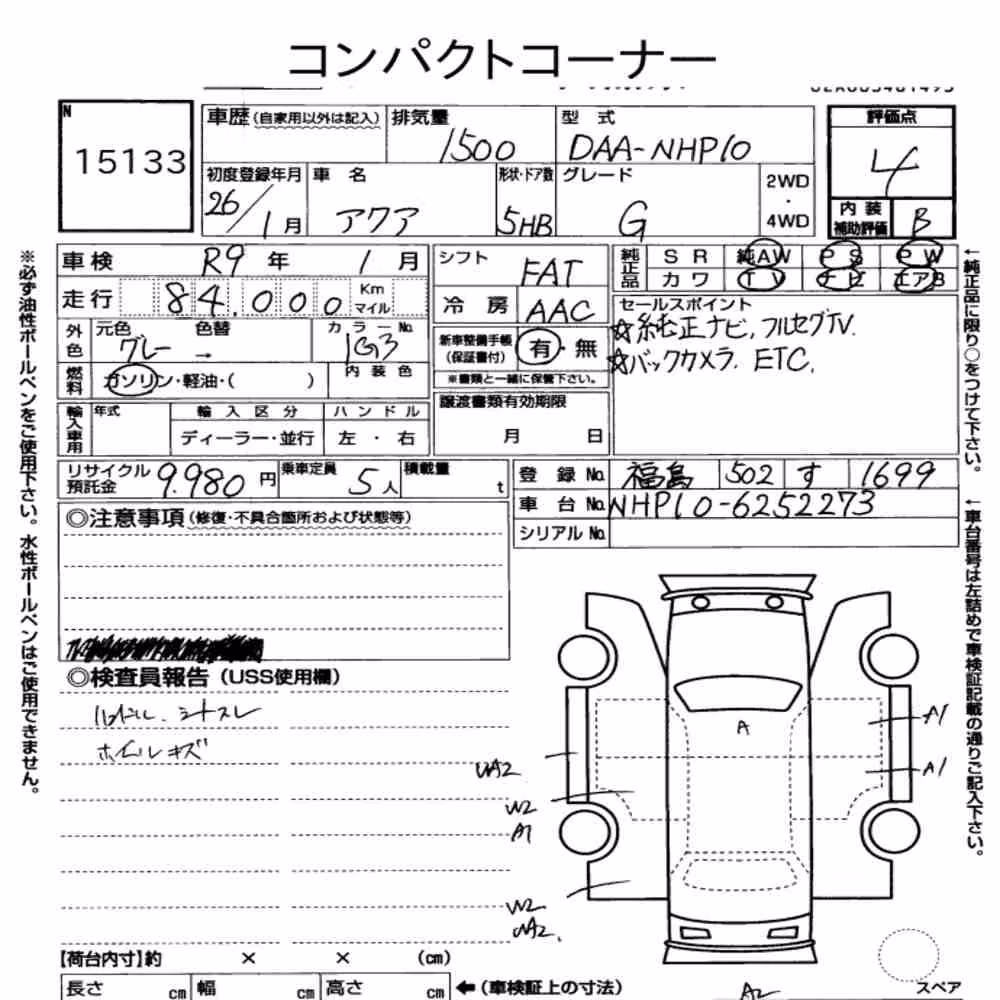 コンパクトコーナー
N
15133
車歴 (自家用以外は記入)
排気量
1500
型式
DAA-NHP10
評価点
4
初度登録年月
26/1月
車名
アクア
形状・ドア数
5HB
グレード
G
2WD
・
4WD
内装
補助評価
B
車検 R9年 1月
走行 84,000 Km マイル
外色
元色
グレー
色替
→
カラーNo.
1G3
燃料
ガソリン・軽油・( )
内装色
輸入車用
年式
輸入区分
ディーラー・並行
ハンドル
左・右
シフト
FAT
冷房
AAC
新車整備手帳
(保証書付)
有・無
※書類と一緒に保管下さい。
譲渡書類有効期限
月 日
純正品
SR 純AW PS PW
カワ TV ナビ エアB
セールスポイント
☆純正ナビ,フルセグTV.
☆バックカメラ. ETC.
リサイクル
預託金
9.980円
乗車定員
5人
積載量
t
登録No. 福島 502 す 1699
車台No. NHP10-6252273
シリアルNo.
◎注意事項(修復・不具合箇所および状態等)
◎検査員報告(USS使用欄)
ハンドル、シートスレ
ホイールキズ
A
A1
A1
UA2
W2
A1
W2
UA2.
A2
【荷台内寸】約 × × (cm)
長さ cm 幅 cm 高さ cm
←(車検証上の寸法)
スペア
※必ず油性ボールペンをご使用下さい。水性ボールペンはご使用できません。
←純正品に限り○をつけて下さい。
←車台番号は左詰めで車検証記載の通りご記入下さい。